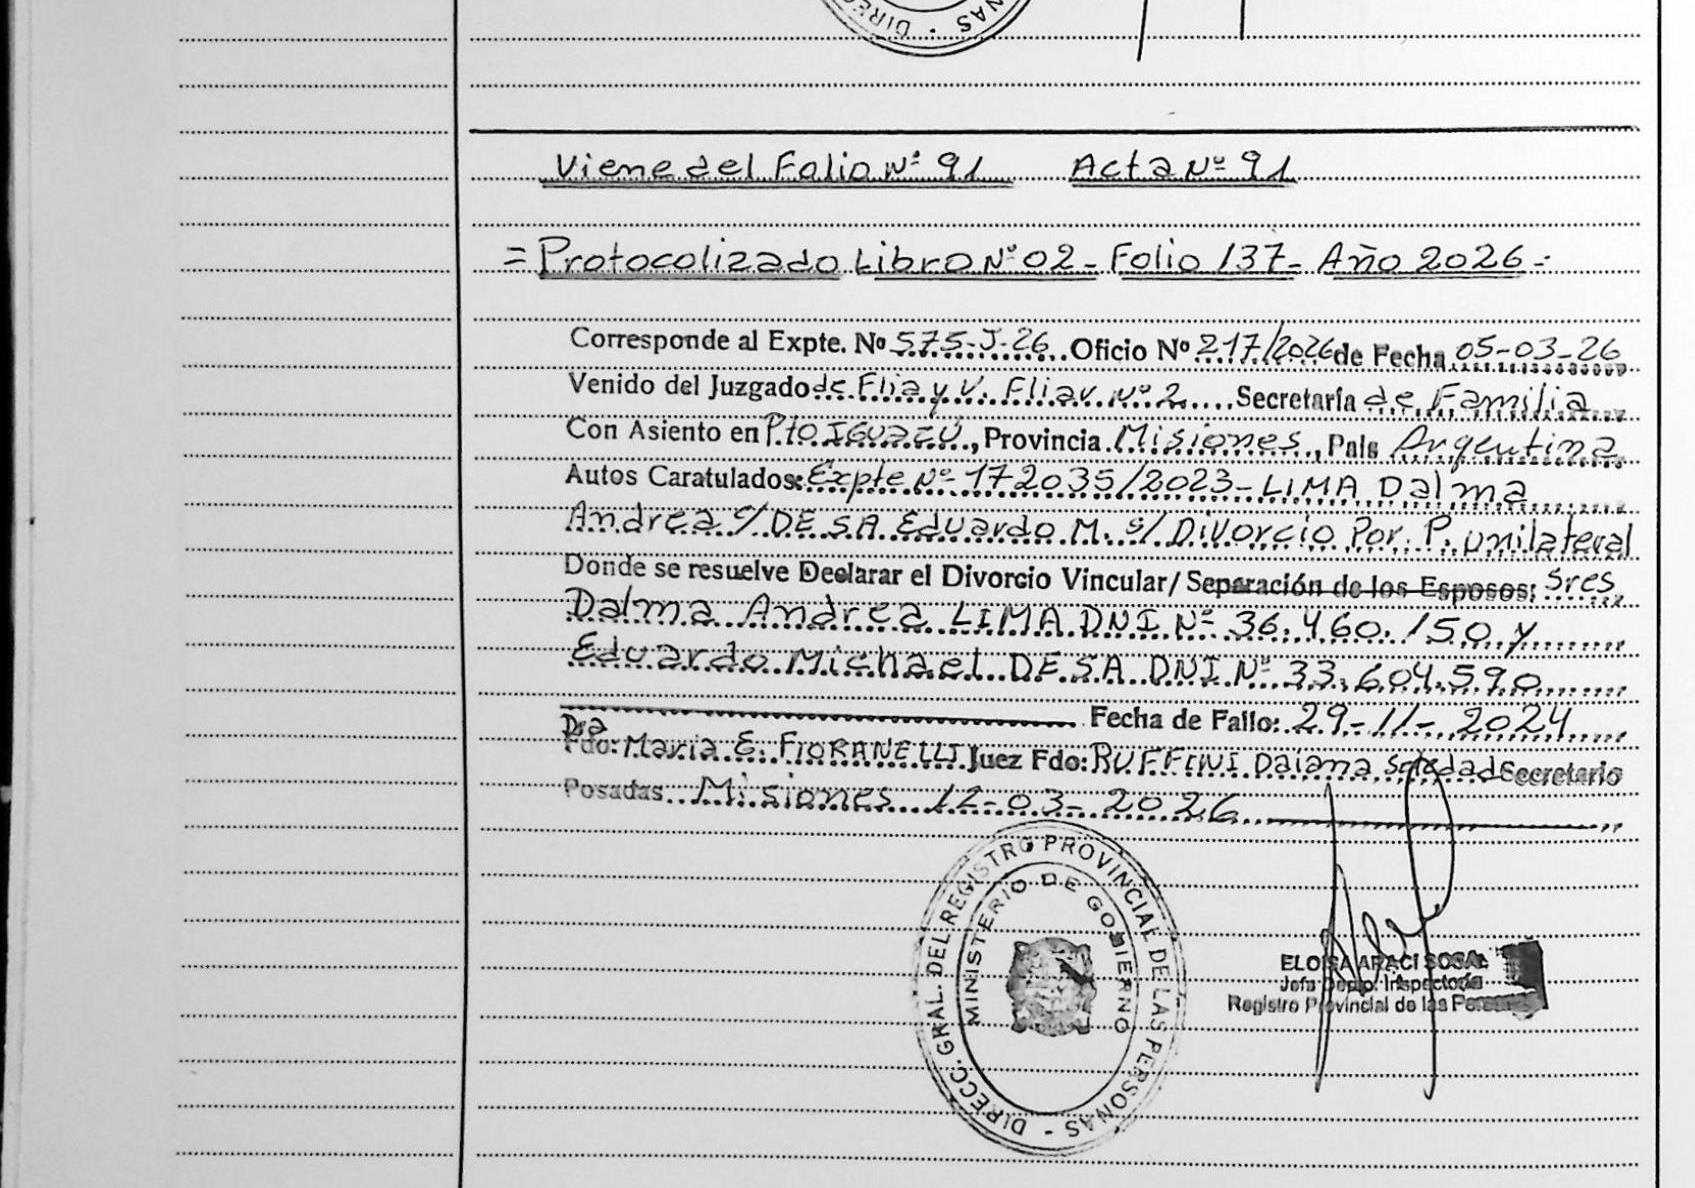 DIRECC
NAS
Viene del Folio Nº 91 Acta Nº 91
= Protocolizado Libro Nº 02 - Folio 137 - Año 2026 -
Corresponde al Expte. Nº 575-J-26 Oficio Nº 217/2026 de Fecha 05-03-26
Venido del Juzgado de Flia y V. Fliar Nº 2 Secretaría de Familia
Con Asiento en Pto IGUAZÚ, Provincia Misiones, País Argentina
Autos Caratulados: Expte Nº 172035/2023 - LIMA Dalma
Andrea c/ DE SA Eduardo M. s/ Divorcio Por P. unilateral
Donde se resuelve Declarar el Divorcio Vincular/ Separación de los Esposos; Sres
Dalma Andrea LIMA DNI Nº 36.460.150 y
Eduardo Michael DE SA DNI Nº 33.604.590
Fecha de Fallo: 29-11-2024
Dra
Fdo: Maria E. FIORANELLI Juez Fdo: RUFFINI Daiana Soledad Secretario
Posadas Misiones 12-03-2026
DIRECC. GRAL. DEL REGISTRO PROVINCIAL DE LAS PERSONAS -
MINISTERIO DE GOBIERNO
ELOISA ARACI SOSA
Jefa Depto. Inspectoría
Registro Provincial de las Personas